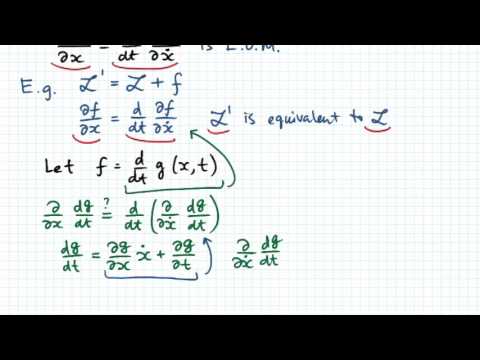 ∂x = d/dt ∂ẋ is E.O.M.
E.g. ℒ' = ℒ + f
∂f/∂x = d/dt ∂f/∂ẋ ℒ' is equivalent to ℒ
Let f = d/dt g(x,t)
∂/∂x dg/dt ?= d/dt (∂/∂ẋ dg/dt)
dg/dt = ∂g/∂x ẋ + ∂g/∂t ∂/∂ẋ dg/dt